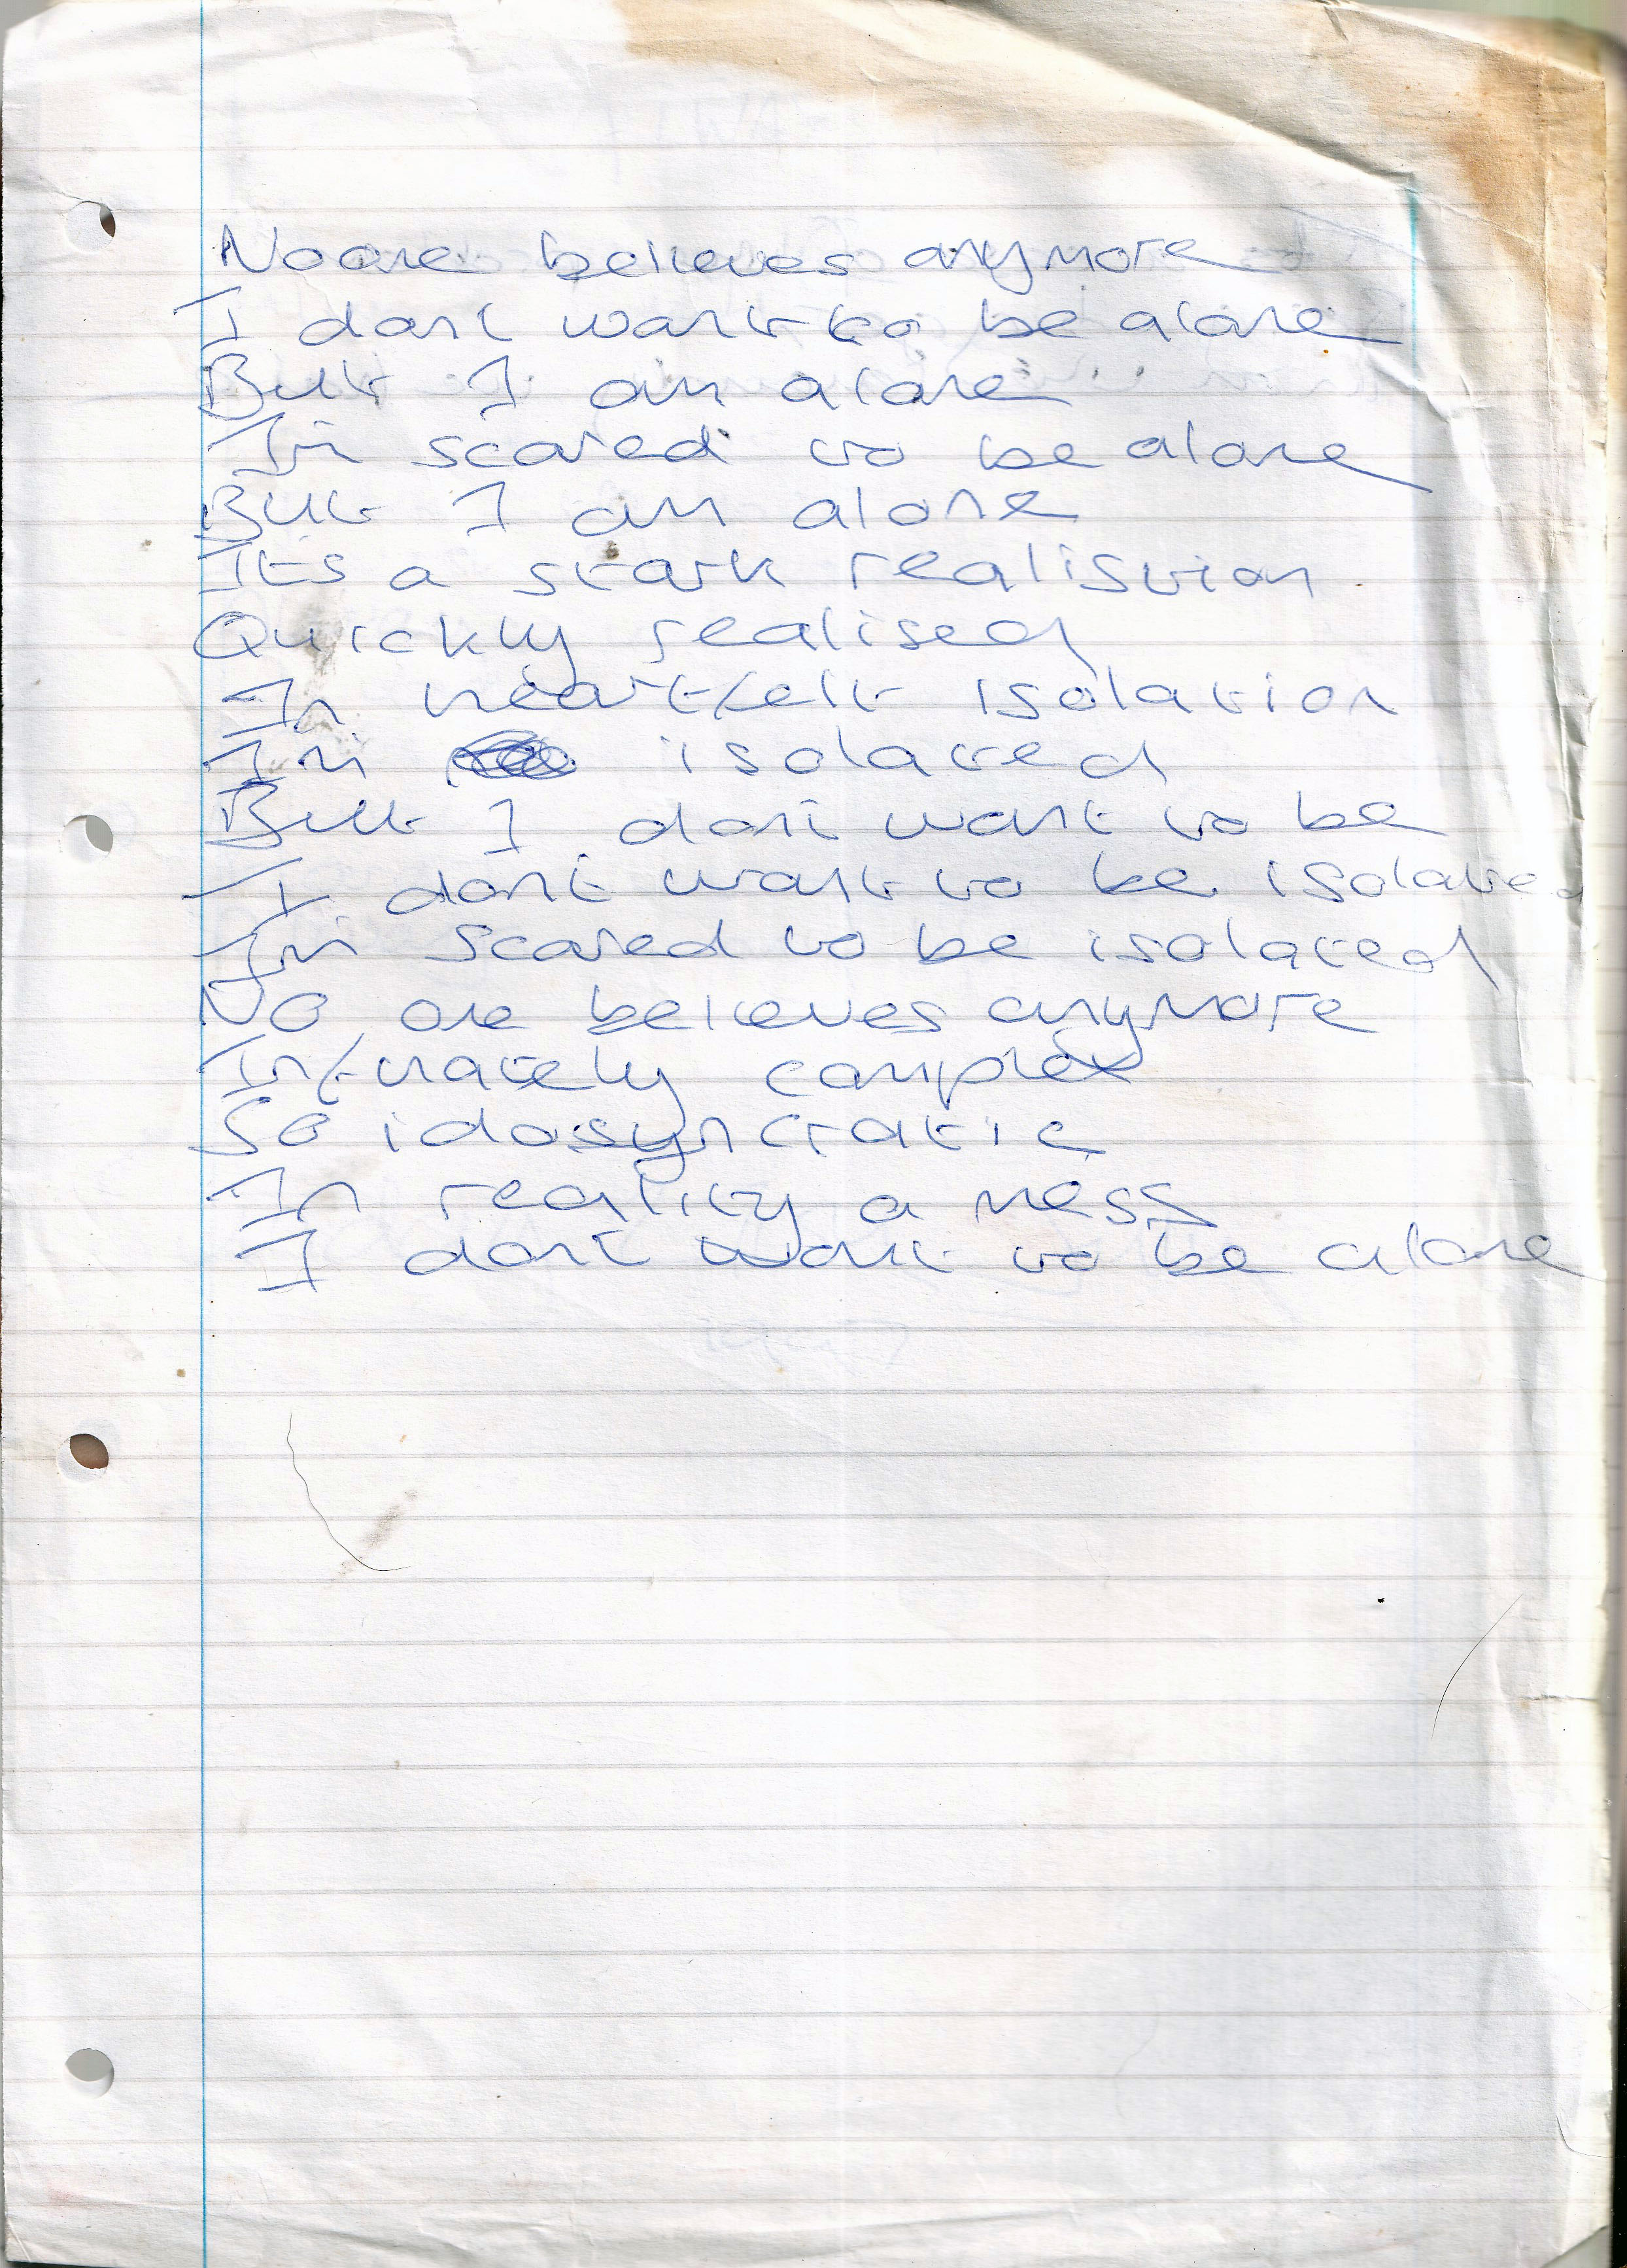 Noone believes anymore
I dont want to be alone
But I am alone
Im scared to be alone
But I am alone
Its a stark realistion
Quickly realised
In heartfelt isolation
Im isolated
But I dont want to be
I dont want to be isolated
Im scared to be isolated
No one believes anymore
complex
So idosyncratic
In reality a mess
I dont want to be alone